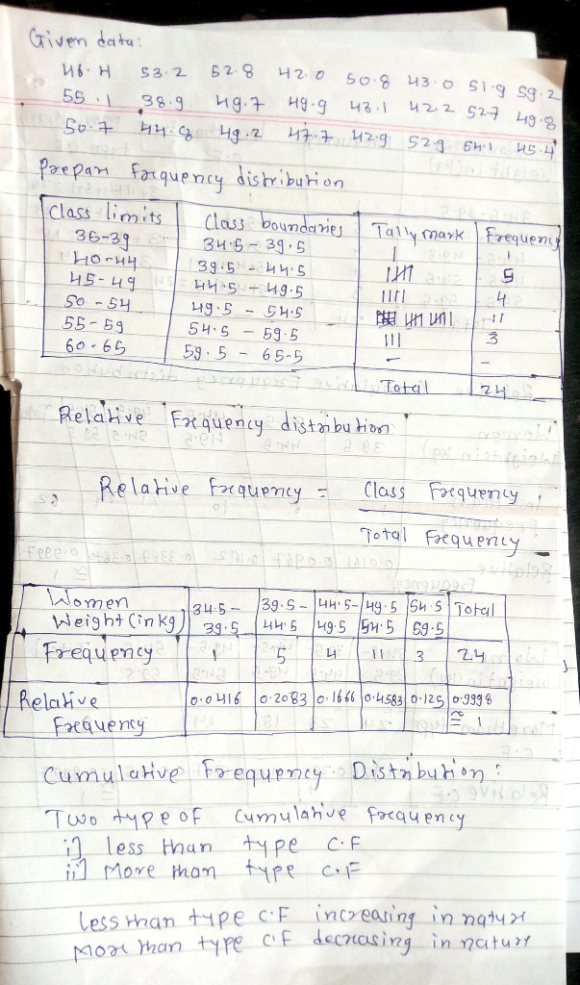 Given data:
46.4 53.2 52.8 42.0 50.8 43.0 51.9 59.2
55.1 38.9 49.7 49.9 43.1 42.2 52.7 49.8
50.7 44.8 49.2 47.7 42.9 52.9 54.1 45.4
Prepare Frequency distribution
Class limits Class boundaries Tally mark Frequency
35-39 34.5 - 39.5 | 1
40-44 39.5 - 44.5 5
45-49 44.5 - 49.5 |||| 4
50-54 49.5 - 54.5 11
55-59 54.5 - 59.5 ||| 3
60-65 59.5 - 65.5 - -
Total 24
Relative Frequency distribution
Relative Frequency = Class Frequency
Total Frequency
Women 34.5- 39.5- 44.5- 49.5 54.5 Total
Weight (in kg) 39.5 44.5 49.5 54.5 59.5
Frequency 1 5 4 11 3 24
Relative 0.0416 0.2083 0.1666 0.4583 0.125 0.9998
Frequency ≅ 1
Cumulative Frequency Distribution:
Two type of cumulative frequency
i] less than type C.F
ii] More than type C.F
less than type C.F increasing in nature
More than type C.F decreasing in nature